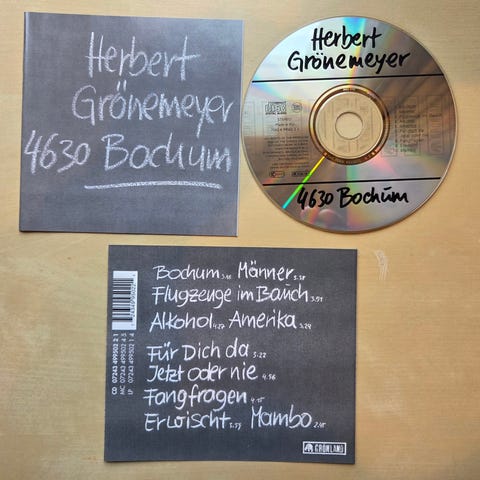 Herbert
Grönemeyer
4630 Bochum
Herbert
Grönemeyer
STEREO
4630 Bochum
Bochum 3.48 Männer 3.38
Flugzeuge im Bauch 3.53
Alkohol 4.27 Amerika 3.24
Für Dich da 3.22
Jetzt oder nie 4.56
Fangfragen 4.15
Erwischt 3.39 Mambo 2.45
CD 07243 499502 2 1
MC 07243 499502 4 5
LP 07243 499502 1 4
GRÖNLAND